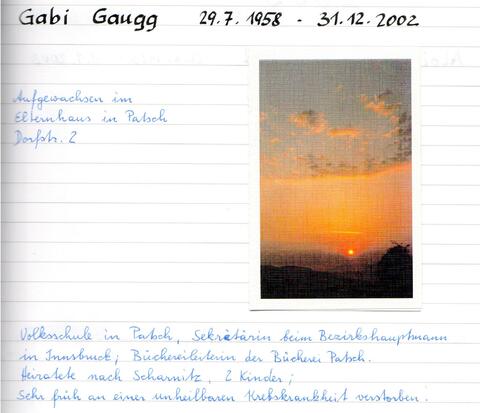 Gabi Gaugg 29.7.1958 - 31.12.2002
Aufgewachsen im
Elternhaus in Patsch
Dorfstr. 2
Volksschule in Patsch, Sekretärin beim Bezirkshauptmann
in Innsbruck; Büchereileiterin der Bücherei Patsch.
Heiratete nach Scharnitz, 2 Kinder;
Sehr früh an einer unheilbaren Krebskrankheit verstorben!